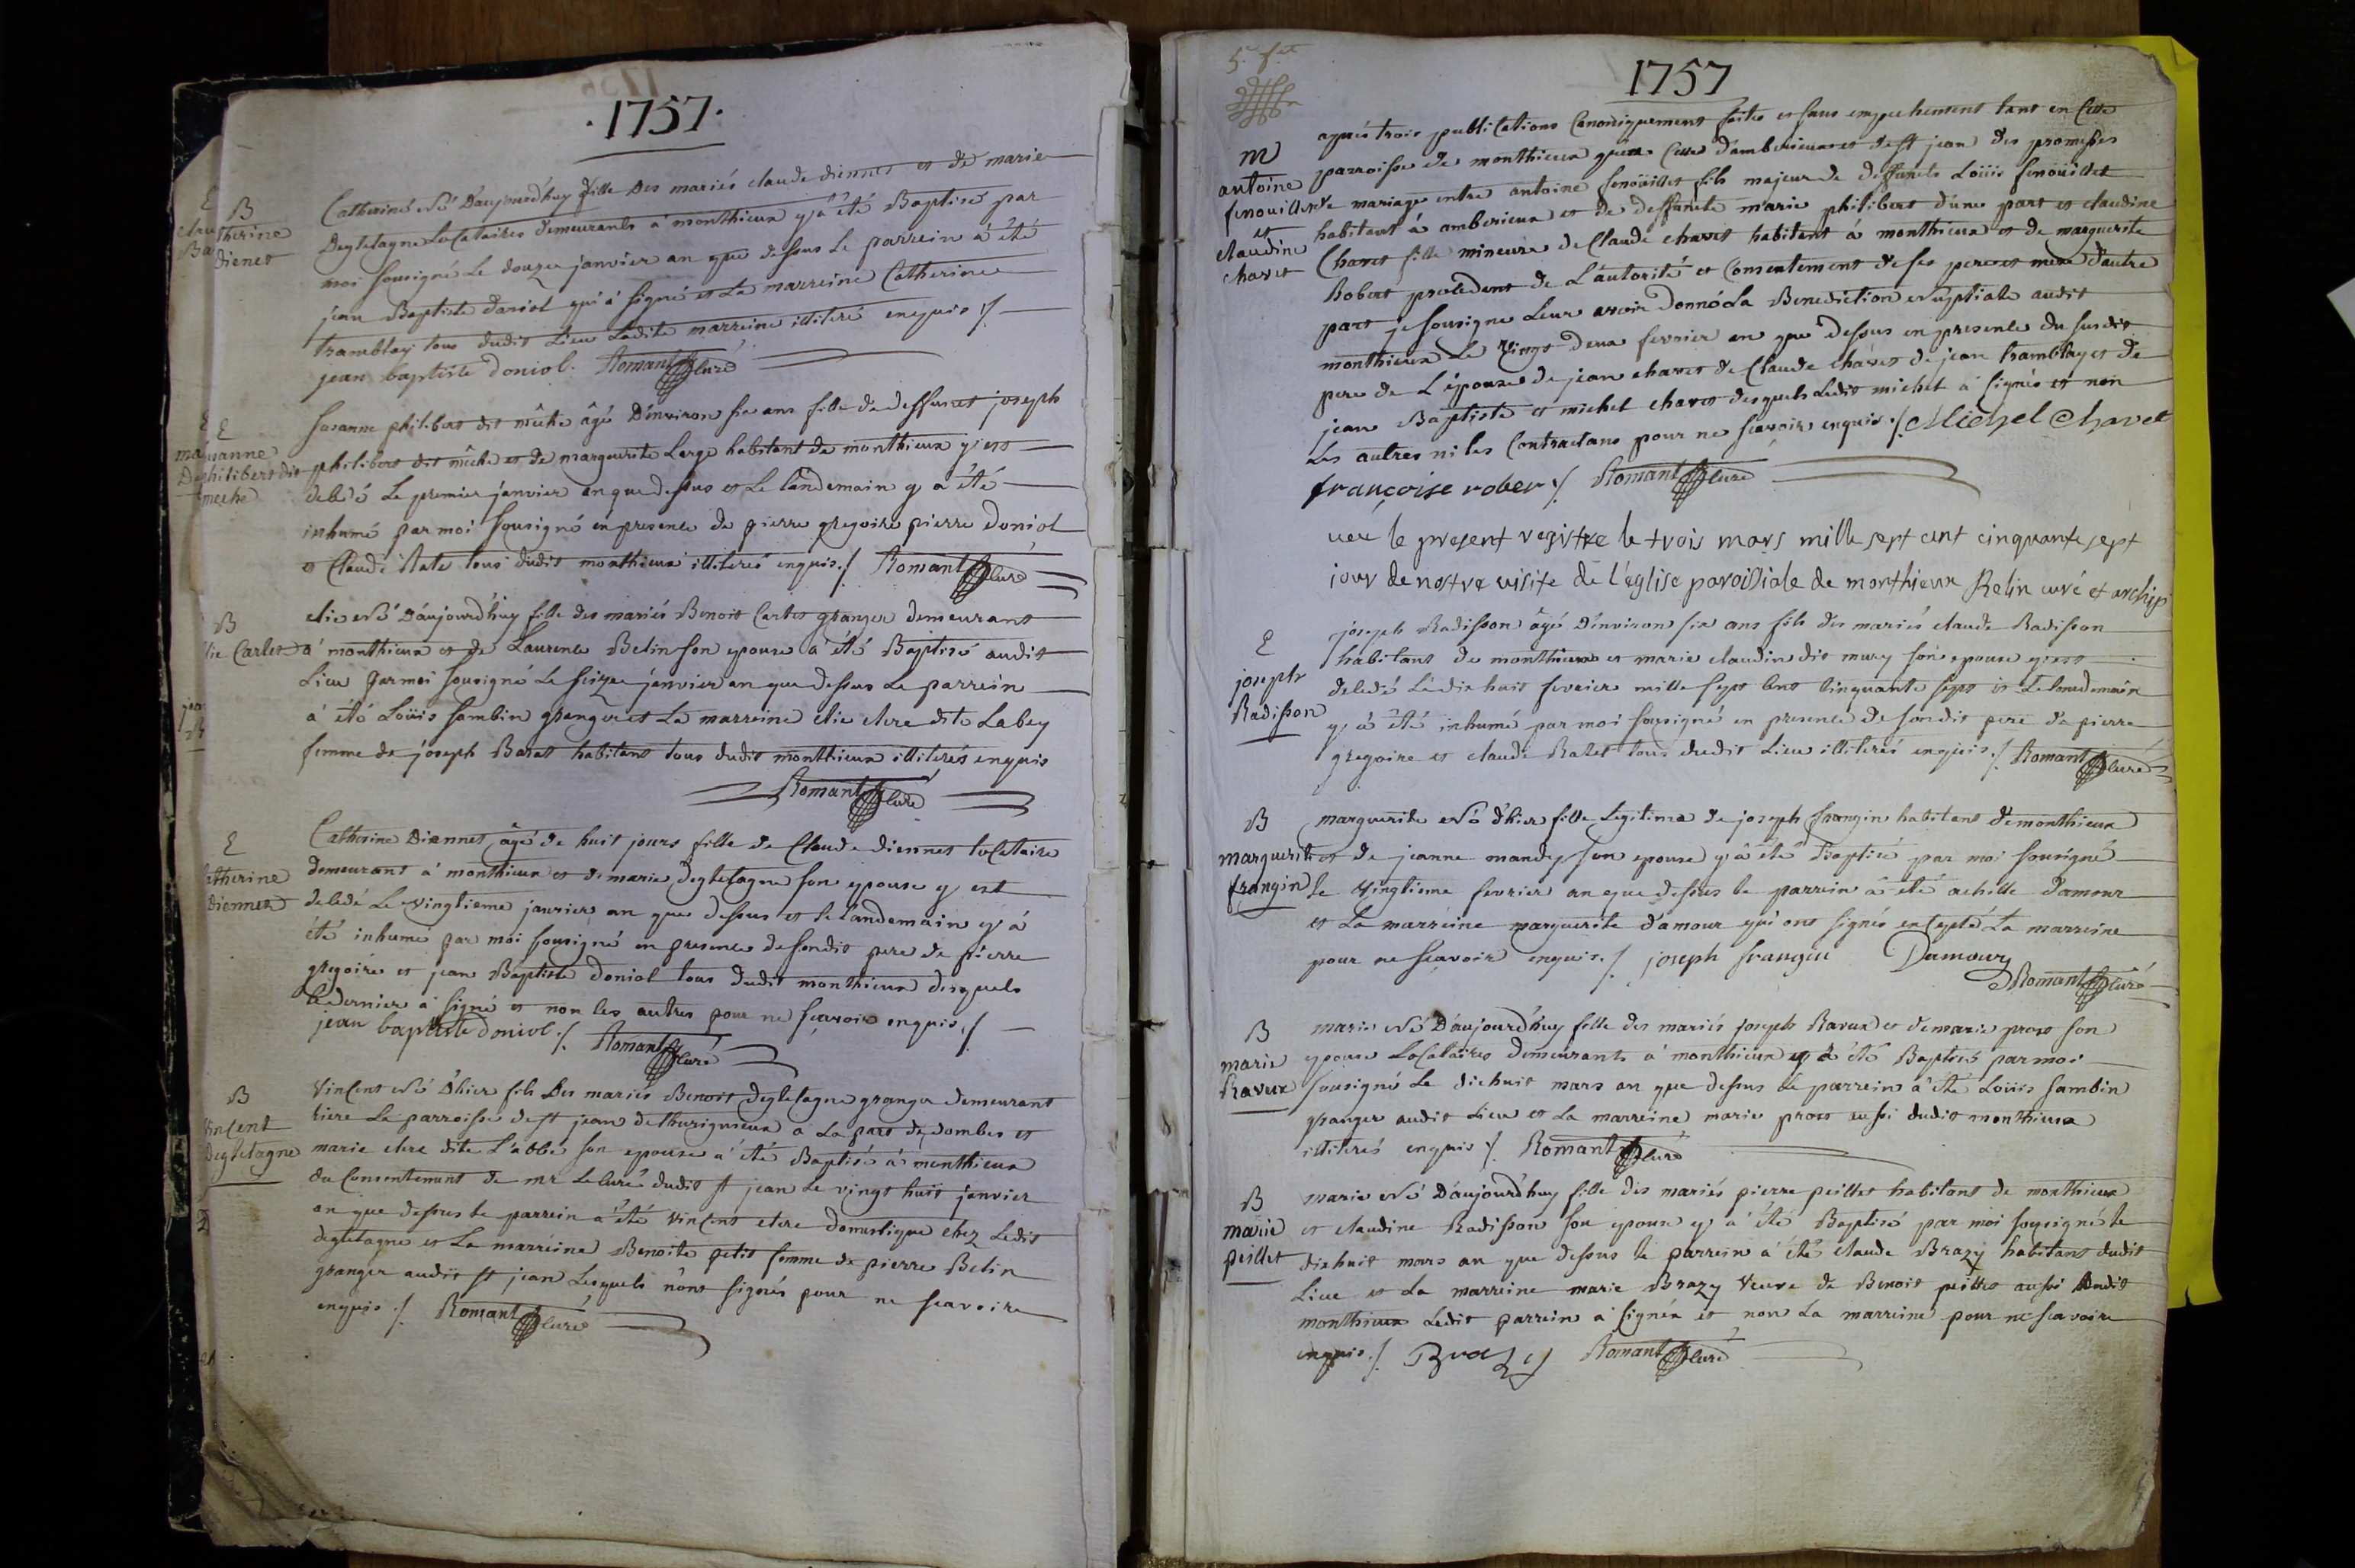 .1757.
B
Catherine
Dienet
Catherine Né D'aujourd'huy fille Des mariés claude diennet et de marie
Degletagne Locataires demeurants a monthieux y a été Baptisé par
moi sousigné Le douze janvier an que dessus Le parrein a été
jean Baptiste Doniol qui a signé et La marreine Catherine
tramblay tous dudit Lieu Ladite marreine illiteré enquis ./.
jean baptiste doniol. Romant Curé
E
Susanne
philibert dit
meche
Susanne philibert dit mêche âgé D'environ six ans fille de deffunct joseph
philibert dit mêche et de marguerite Large habitant de monthieux y est
decedé Le premier janvier an que dessus et Le landemain y a été
inhumé par moi sousigné en presence de pierre gregoire pierre doniol
et Claude Rate tous dudit monthieux illiterés enquis ./. Romant Curé
B
elie Carlet
elie Né D'aujourd'huy fille des mariés Benoit Carlet granger demeurant
a monthieux et de Laurence Belin son epouse a été Baptisé audit
Lieu par moi sousigné Le seize janvier an que dessus Le parrein
a été Loüis sambin granger et La marreine elie clere dite Labey
femme de joseph Barat habitant tous dudit monthieux illiterés enquis
Romant Curé
E
Catherine
Diennet
Catherine Diennet âgé de huit jours fille de Claude diennet locataire
demeurant a monthieux et de marie degletagne son epouse y est
decedé Le vingtieme janvier an que dessus et le landemain y a
été inhumé par moi sousigné en presence de sondit pere de pierre
gregoire et jean Baptiste doniol tous dudit monthieux desquels
Le dernier a signé et non les autres pour ne scavoir enquis ./.
jean baptiste doniol ./. Romant Curé
B
Vincent
Degletagne
Vincent Né D'hier fils Des mariés Benoit degletagne granger demeurant
riere La parroisse de st jean de thurigneux a La part de dombes et
marie clere dite L'abbé son epouse a été Baptisé a monthieux
du Consentement de mr Le Curé dudit st jean Le vingt huit janvier
an que dessus le parrein a été Vincent clere domestique chez Ledit
degletagne et La marreine Benoite petit femme de pierre Belin
granger audit st jean Lesquels n'ont signés pour ne scavoire
enquis ./. Romant Curé
1757
m
antoine
fenouillet
et
claudine
chavet
apres trois publications Canoniquement faites et sans empechement tant en Cette
parroisse de monthieux qu'en Celles d'amberieux et de st jean des promesses
de mariage entre antoine fenoüillet fils majeur de deffuncts Loüis fenoüillet
habitant a amberieux et de deffuncte marie philibert d'une part et claudine
Chavet fille mineure de Claude chavet habitant a monthieux et de marguerite
Robert procedent de L'autorité et Consentement de ses pere et mere d'autre
part je sousigne Leur avoir donné La Benediction Nuptiale audit
monthieux Le Vingt deux fevrier an que dessus en presence du susdit
pere de L'épouse de jean chavet de Claude chavet de jean tramblay et de
jean Baptiste et michel chavet desquels Ledit michel a signés et non
Les autres ni les Contractans pour ne scavoir enquis ./. Michel Chavet
françoise rober ./. Romant Curé
veu le present registre le trois mars mille sept cent cinquante sept
jour de nostre visite de l'église paroissiale de monthieux Relin curé et archip
E
joseph
Radisson
joseph Radisson âgé D'environ six ans fils des mariés claude Radisson
habitant de monthieux et marie claudin dit mury son epouse y est
decedé Le dix huit fevrier mille sept Cent Cinquante sept et Le landemain
y a été inhumé par moi sousigné en presence de sondit pere de pierre
gregoire et claude Ratet tous dudit Lieu illiterés enquis ./. Romant Curé
B
marguerite
frangin
marguerite Né d'hier fille Legitime de joseph frangin habitant de monthieux
et de jeanne mandy son epouse y a été Baptisé par moi sousigné
le Vingtieme fevrier an que dessus le parrein a été achille damour
et La marreine marguerite d'amour qui ont signés excepté La marreine
pour ne scavoir enquis ./. joseph frangin Damour
Romant Curé
B
marie
Ravux
marie Né D'aujourd'huy fille des mariés joseph Ravux et de marie prost son
epouse Locataires demeurants a monthieux y a été Baptisé par moi
sousigné Le dixhuit mars an que dessus le parrein a été Loüis sambin
granger audit Lieu et La marreine marie prost aussi dudit monthieux
illiterés enquis ./. Romant Curé
B
marie
peillet
marie Né D'aujourd'huy fille des mariés pierre peillet habitant de monthieux
et claudine Radisson son epouse y a été Baptisé par moi sousigné le
dixhuit mars an que dessus le parrein a été claude Brazy habitant dudit
Lieu et La marreine marie Brazy Veuve de Benoit peillet aussi dudit
monthieux Ledit parrein a signéz et non La marreine pour ne scavoire
enquis ./. Brazy Romant Curé